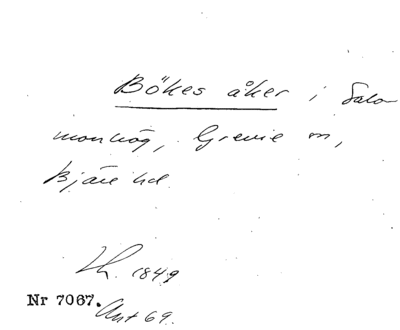 Bökes åker i Salo
monhög, Grevie sn,
Bjäre hd.
Lh. 1849
Nr 7067.
Ant 69.